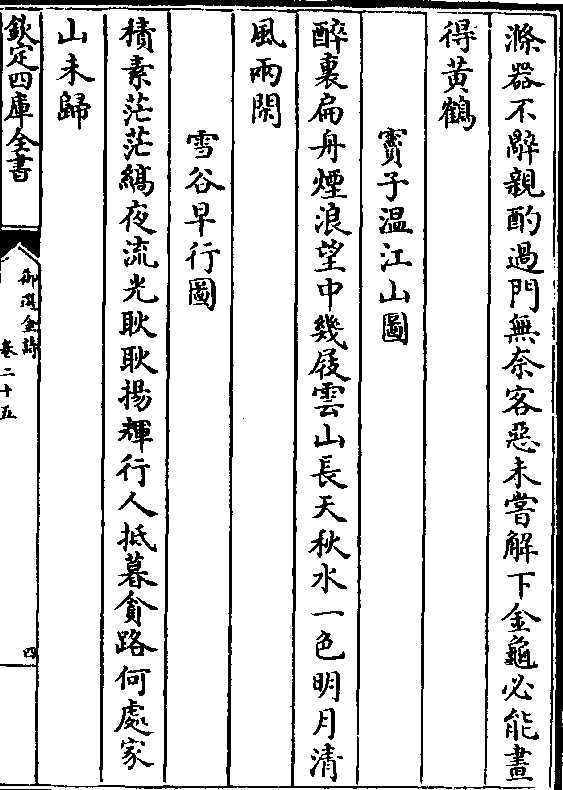 滌器不辭親酌過門無奈客惡未嘗解下金龜必能畫
得黃鶴
竇子温江山圖
醉裏扁舟煙浪望中幾屐雲山長天秋水一色明月清
風兩閑
雪谷早行圖
積素茫茫縞夜流光耿耿揚輝行人抵暮貪路何處家
山未歸
欽定四庫全書
御選金詩
卷二十五
四